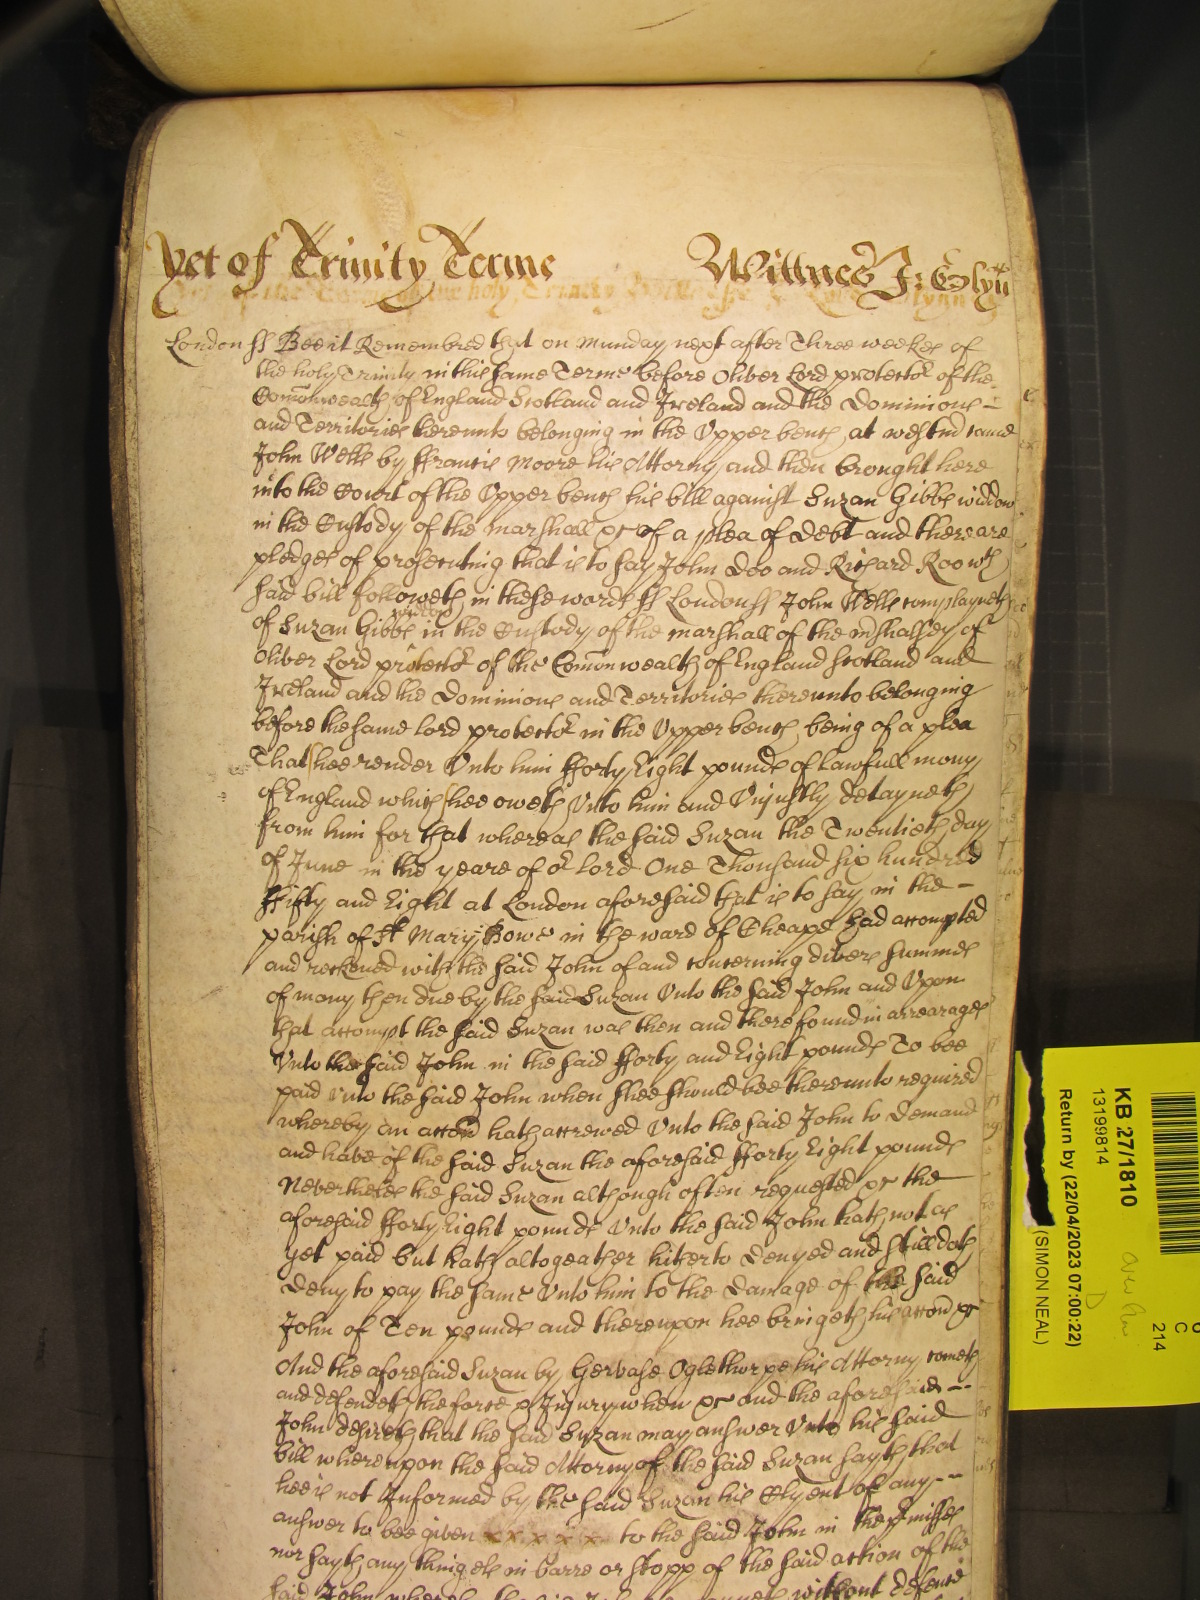 Yet of Trinity Terme Wittnes J: Glyn
London ss Bee it Remembred that on Munday next after Three weekes of
the holy Trinity in this same Terme before Oliver Lord protector of the
Comonwealth of England Scotland and Ireland and the Dominions
and Territories thereunto belonging in the Upper bench at westmr came
John Wells by ffrancis Moore his Attorny and then brought here
into the Court of the Upper bench his bill against Suzan Gibbs widdow
in the Custody of the Marshall &c of a plea of Debt and there are
pledges of prosecuting that is to say John Doo and Richard Roo wch
said bill followeth in these words ss London ss John Wells complayneth
of Suzan Gibbs widdow in the Custody of the marshall of the mshalsey of
Oliver Lord protector of the Comonwealth of England Scotland and
Ireland and the Dominions and Territories thereunto belonging
before the same lord protector in the Upper bench being of a plea
That shee render Unto him fforty Eight pounds of lawfull mony
of England which shee oweth Unto him and Unjustly detayneth
from him for that whereas the said Suzan the Twentieth day
of June in the yeare of or lord One Thousand six hundred
ffifty and Eight at London aforesaid that is to say in the
parish of St Mary Bowe in the ward of Cheape had accompted
and reckened with the said John of and concerning divers summes
of mony then due by the said Suzan Unto the said John and Upon
that accompt the said Suzan was then and there found in arrearages
Unto the said John in the said fforty and Eight pounds To bee
paid Unto the said John when shee should bee thereunto required
whereby an accon hath accrewed Unto the said John to Demand
and have of the said Suzan the aforesaid fforty Eight pounds
Nevertheles the said Suzan although often requested &c the
aforesaid fforty Eight pounds Unto the said John hath not as
yet paid but hath altogeather hiterto Denyed and still doth
Deny to pay the same Unto him to the Damage of the said
John of Ten pounds and thereupon hee bringeth his accon &c
And the aforesaid Suzan by Gervase Oglethorpe his Attorny cometh
and defendeth the force & Injury when &c and the aforesaid
John desireth that the said Suzan may answer Unto his said
bill whereupon the said Attorny of the said Suzan sayth that
hee is not Informed by the said Suzan his Clyent of any
answer to bee given x x x x x to the said John in the pmisses
nor sayth any thing els in barre or stopp of the said action of the
said John whereby the said without defence
KB 27/1810
13199814
Return by (22/04/2023 07:00:22)
(SIMON NEAL)
D
C
214